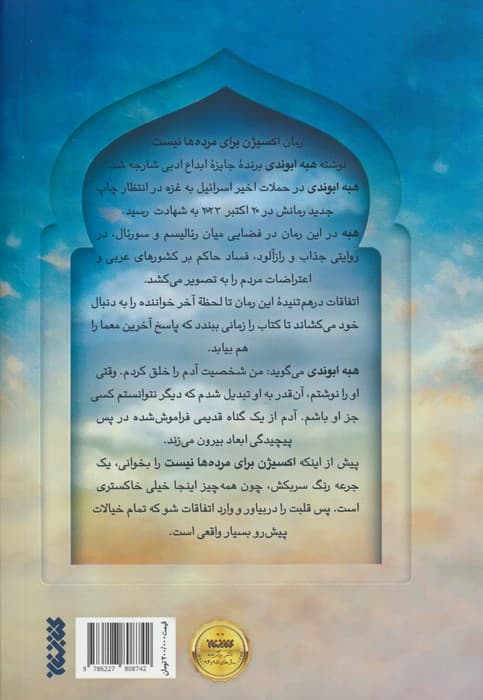 رمان اکسیژن برای مرده‌ها نیست
نوشته هبه ابوندی برندهٔ جایزهٔ ابداع ادبی شارجه شد.
هبه ابوندی در حملات اخیر اسرائیل به غزه در انتظار چاپ
جدید رمانش در ۲۰ اکتبر ۲۰۲۳ به شهادت رسید.
هبه در این رمان در فضایی میان رئالیسم و سورئال، در
روایتی جذاب و رازآلود، فساد حاکم بر کشورهای عربی و
اعتراضات مردم را به تصویر می‌کشد.
اتفاقات درهم‌تنیدهٔ این رمان تا لحظهٔ آخر خواننده را به دنبال
خود می‌کشاند تا کتاب را زمانی ببندد که پاسخ آخرین معما را
هم بیابد.
هبه ابوندی می‌گوید: من شخصیت آدم را خلق کردم. وقتی
او را نوشتم، آن‌قدر به او تبدیل شدم که دیگر نتوانستم کسی
جز او باشم. آدم از یک گناه قدیمی فراموش‌شده در پس
پیچیدگی ابعاد بیرون می‌زند.
پیش از اینکه اکسیژن برای مرده‌ها نیست را بخوانی، یک
جرعه رنگ سربکش، چون همه‌چیز اینجا خیلی خاکستری
است. پس قلبت را دربیاور و وارد اتفاقات شو که تمام خیالات
پیش‌رو بسیار واقعی است.
قیمت: ۲۰۰/۰۰۰ تومان
9 786227 808742